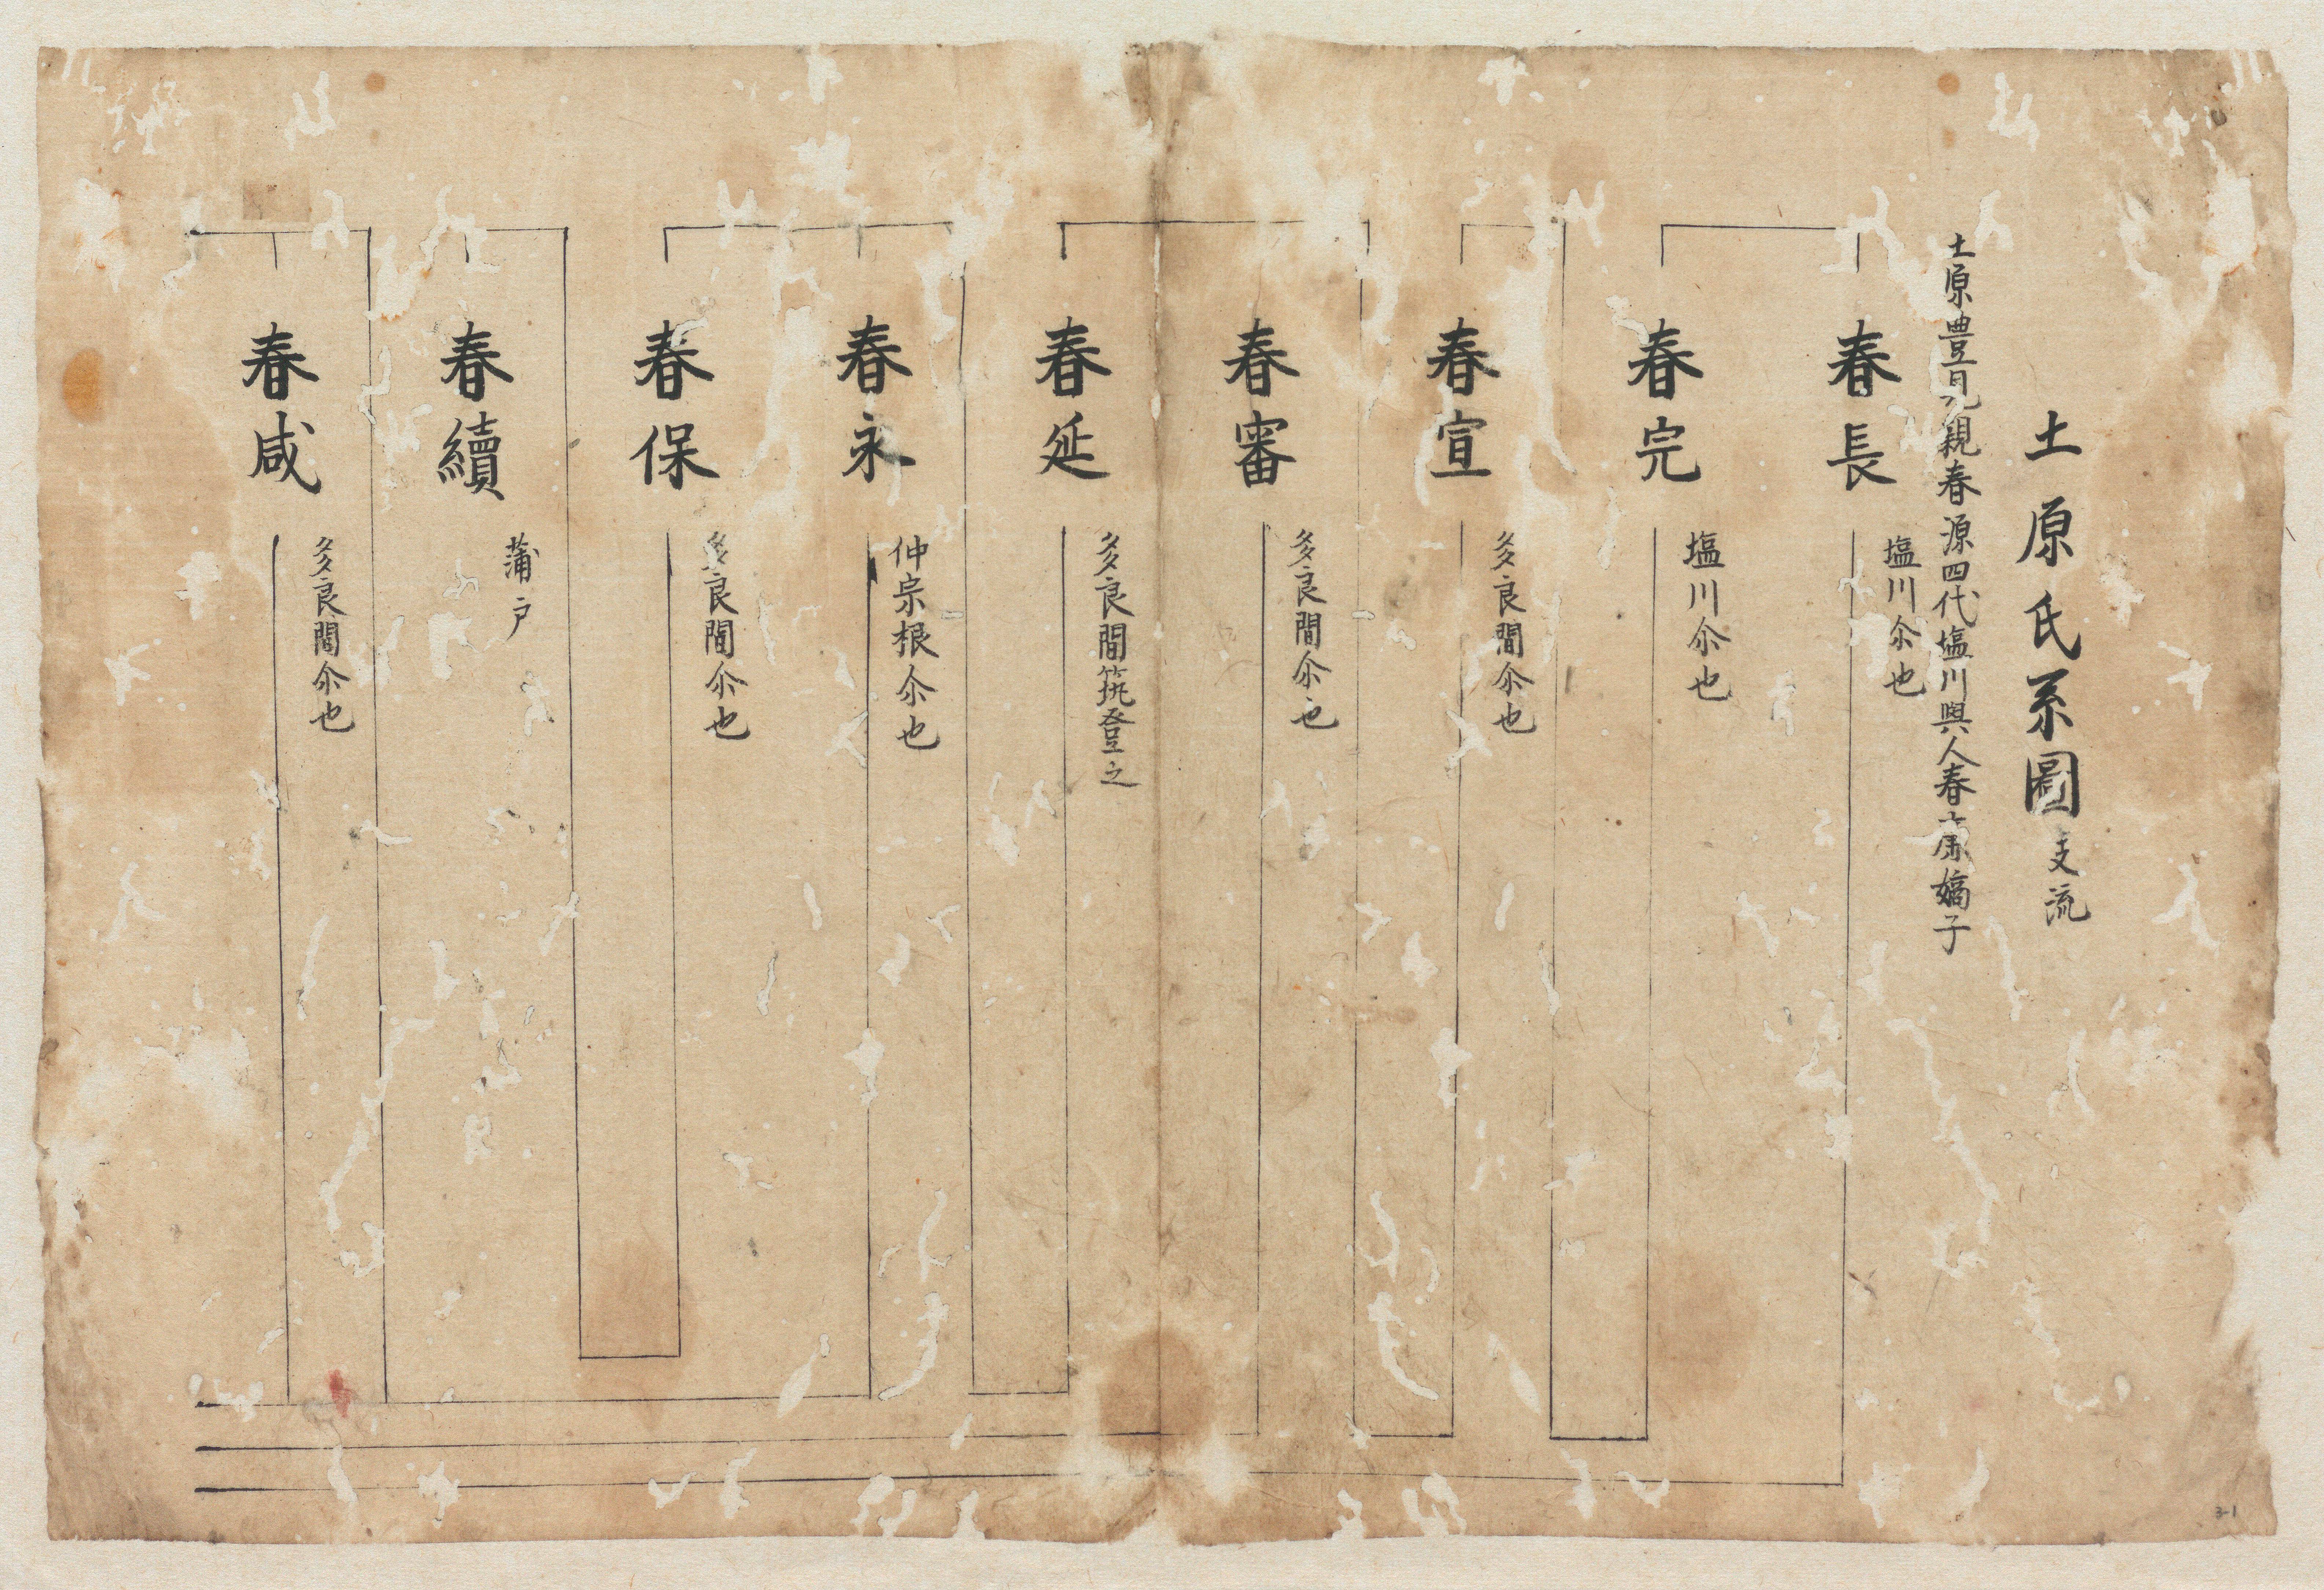 土原氏系圖支流
土原豊見親春源四代塩川與人春 嫡子
春長
塩川尒也
春完
塩川尒也
春宣
多良間尒也
春審
多良間尒也
春延
多良間筑登之
春永
仲宗根尒也
春保
多良間尒也
春續
蒲戸
春咸
多良間尒也
3-1